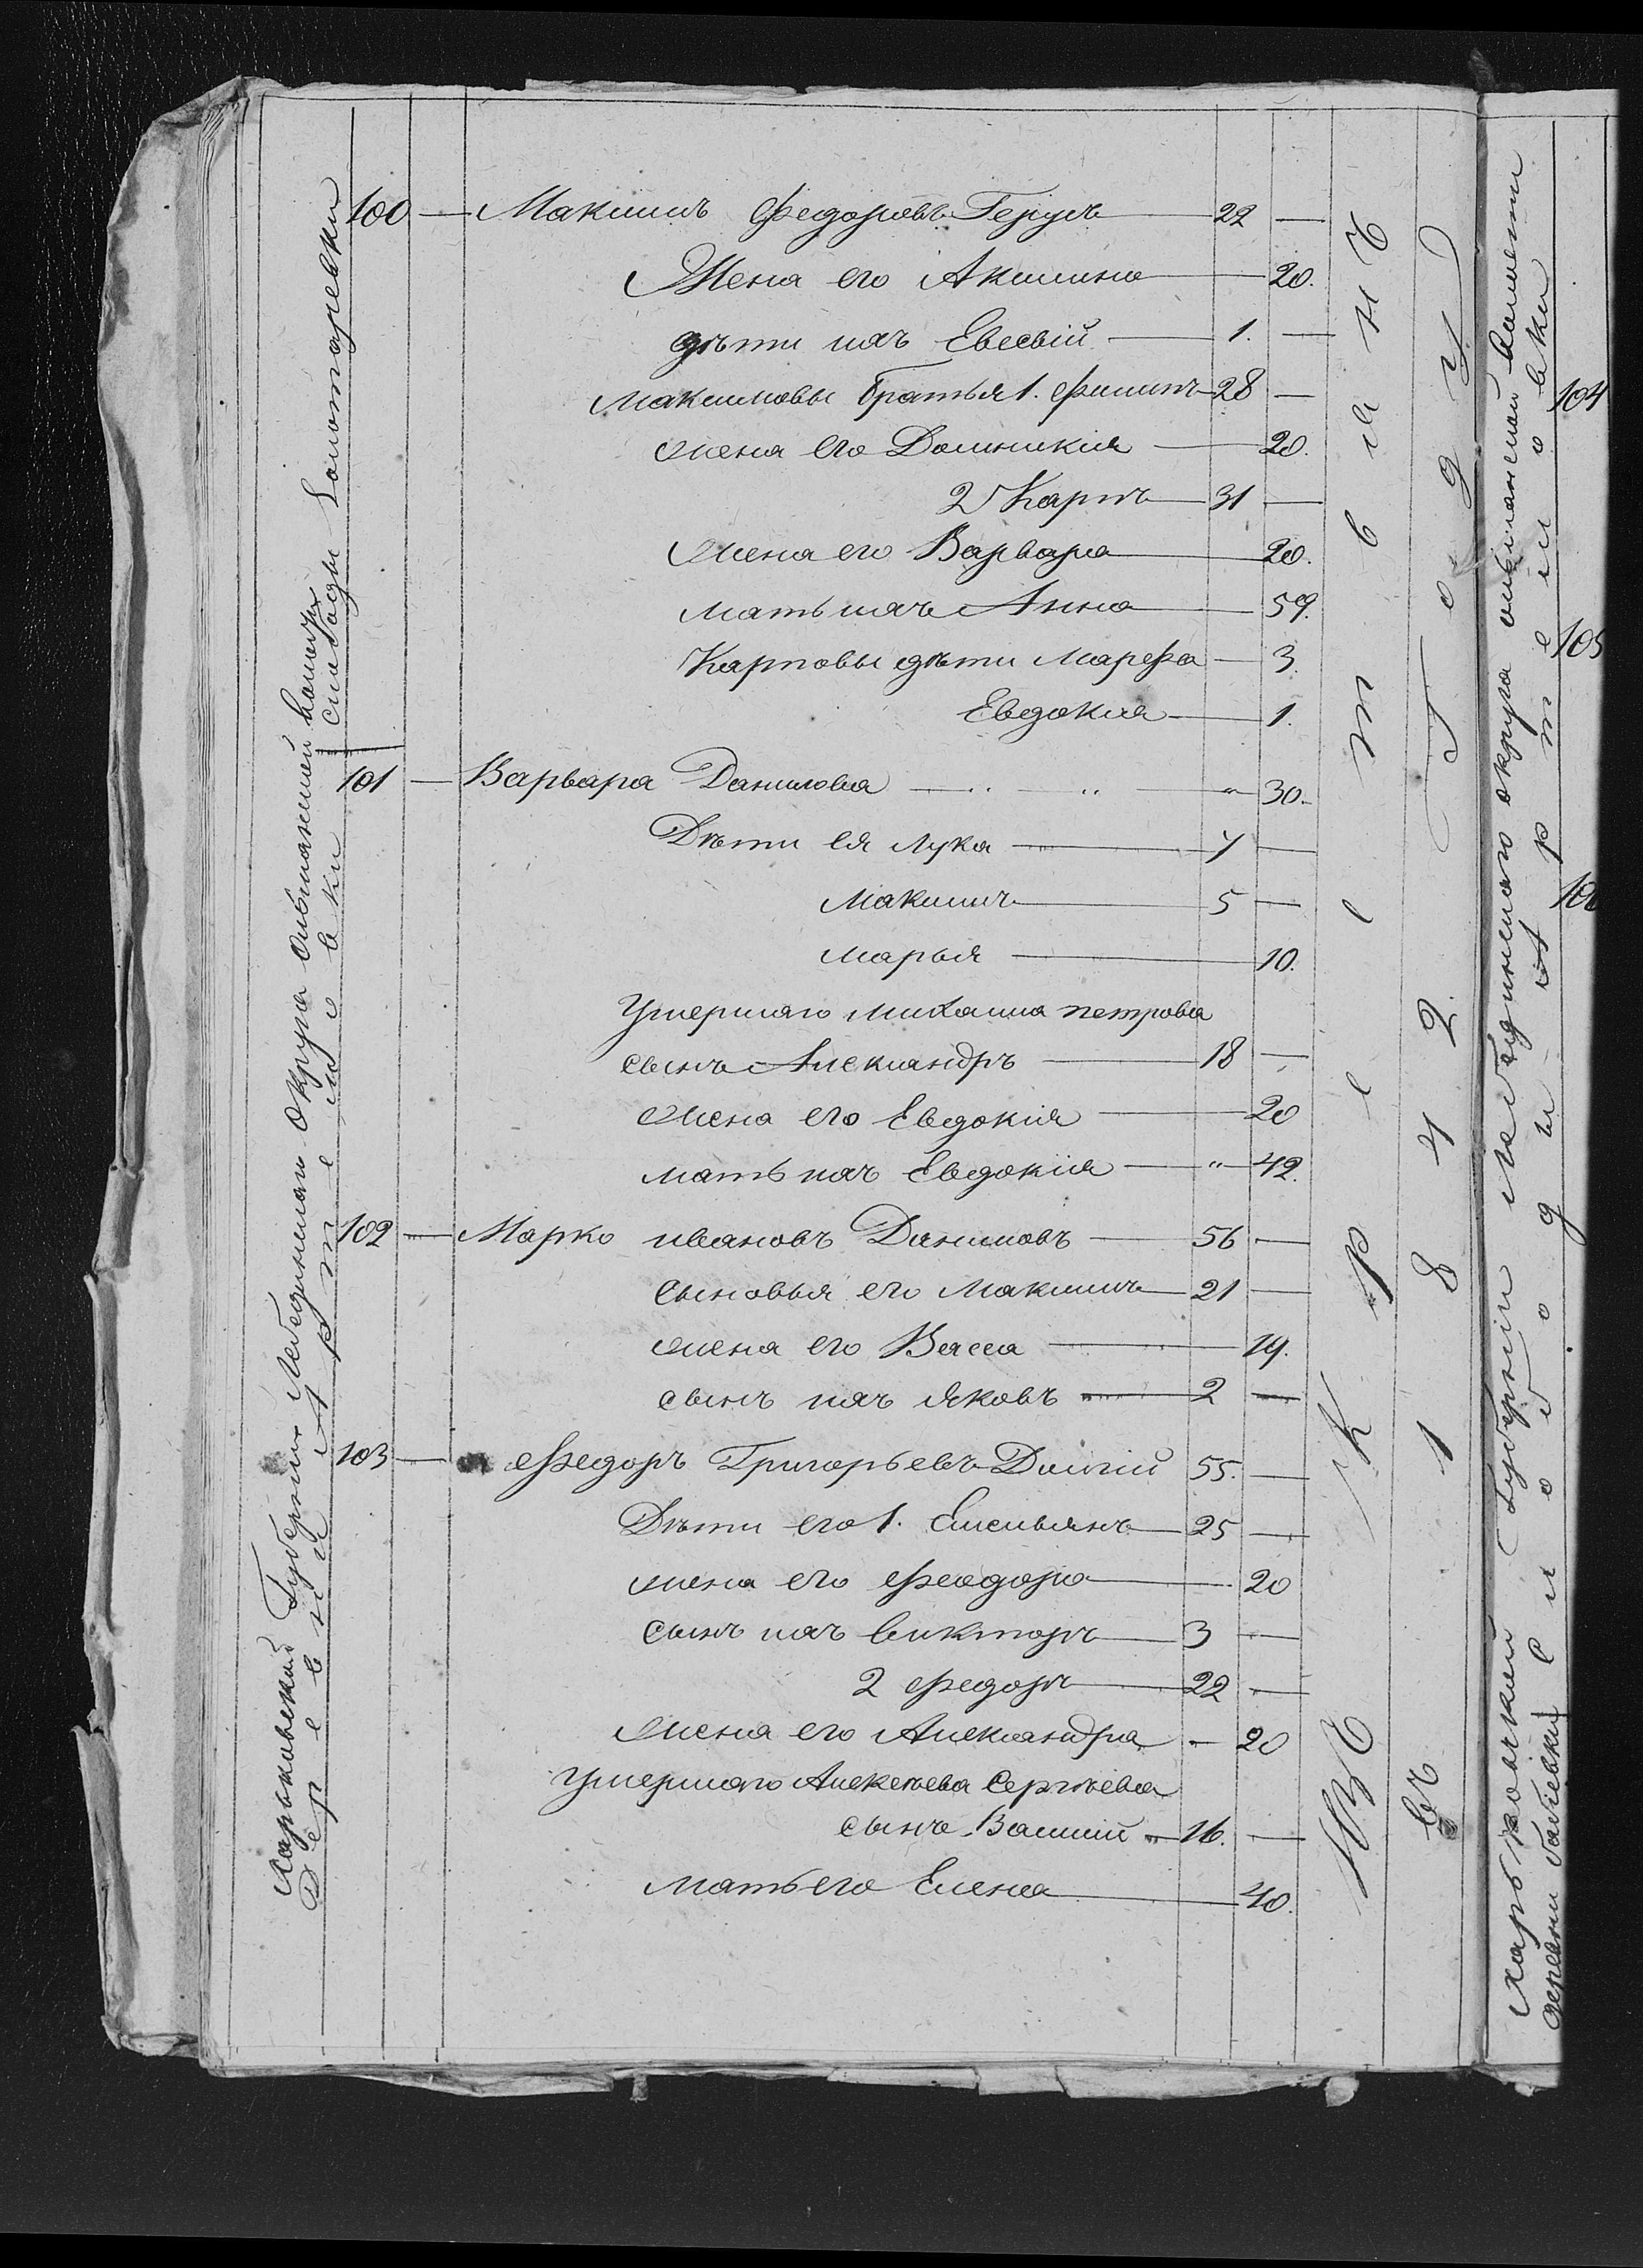 Харьковской Губернии Лебединскаго Округа Ольшанской волости
Деревни Артемовки
слободы
100 — Максимъ Федоровъ Герусъ — 22 —
Жена его Акилина — 20.
дѣти ихъ Евсевій — 1. —
Максимовы братья 1. Филипъ — 28 —
жена его Домникія — 20.
2 Карпъ — 31 —
жена его Варвара — 20.
мать ихъ Анна — 59.
Карповы дѣти Марфа — 3.
Евдокія — 1.
101 — Варвара Данилова — 30.
Дѣти ея Лука — 7 —
Максимъ — 5 —
Марья — 10.
Умершаго Михаила Петрова
сынъ Александръ — 18 —
жена его Евдокія — 20
мать ихъ Евдокія — " — 42.
102 — Марко Ивановъ Даниловъ — 56 —
Сыновья его Максимъ — 21 —
жена его Васса — 19.
сынъ ихъ Яковъ — 2 —
103 — Федоръ Григорьевъ Долгій 55. —
Дѣти его 1. Емельянъ — 25 —
жена его Феодора — 20
сынъ ихъ Викторъ — 3 —
2 Федоръ — 22 —
жена его Александра — 20
Умершаго Алексѣева Сергѣева
сынъ Василій — 16. —
Мать его Елена — 40.
въ 1842 Году
Артемовки
104
105